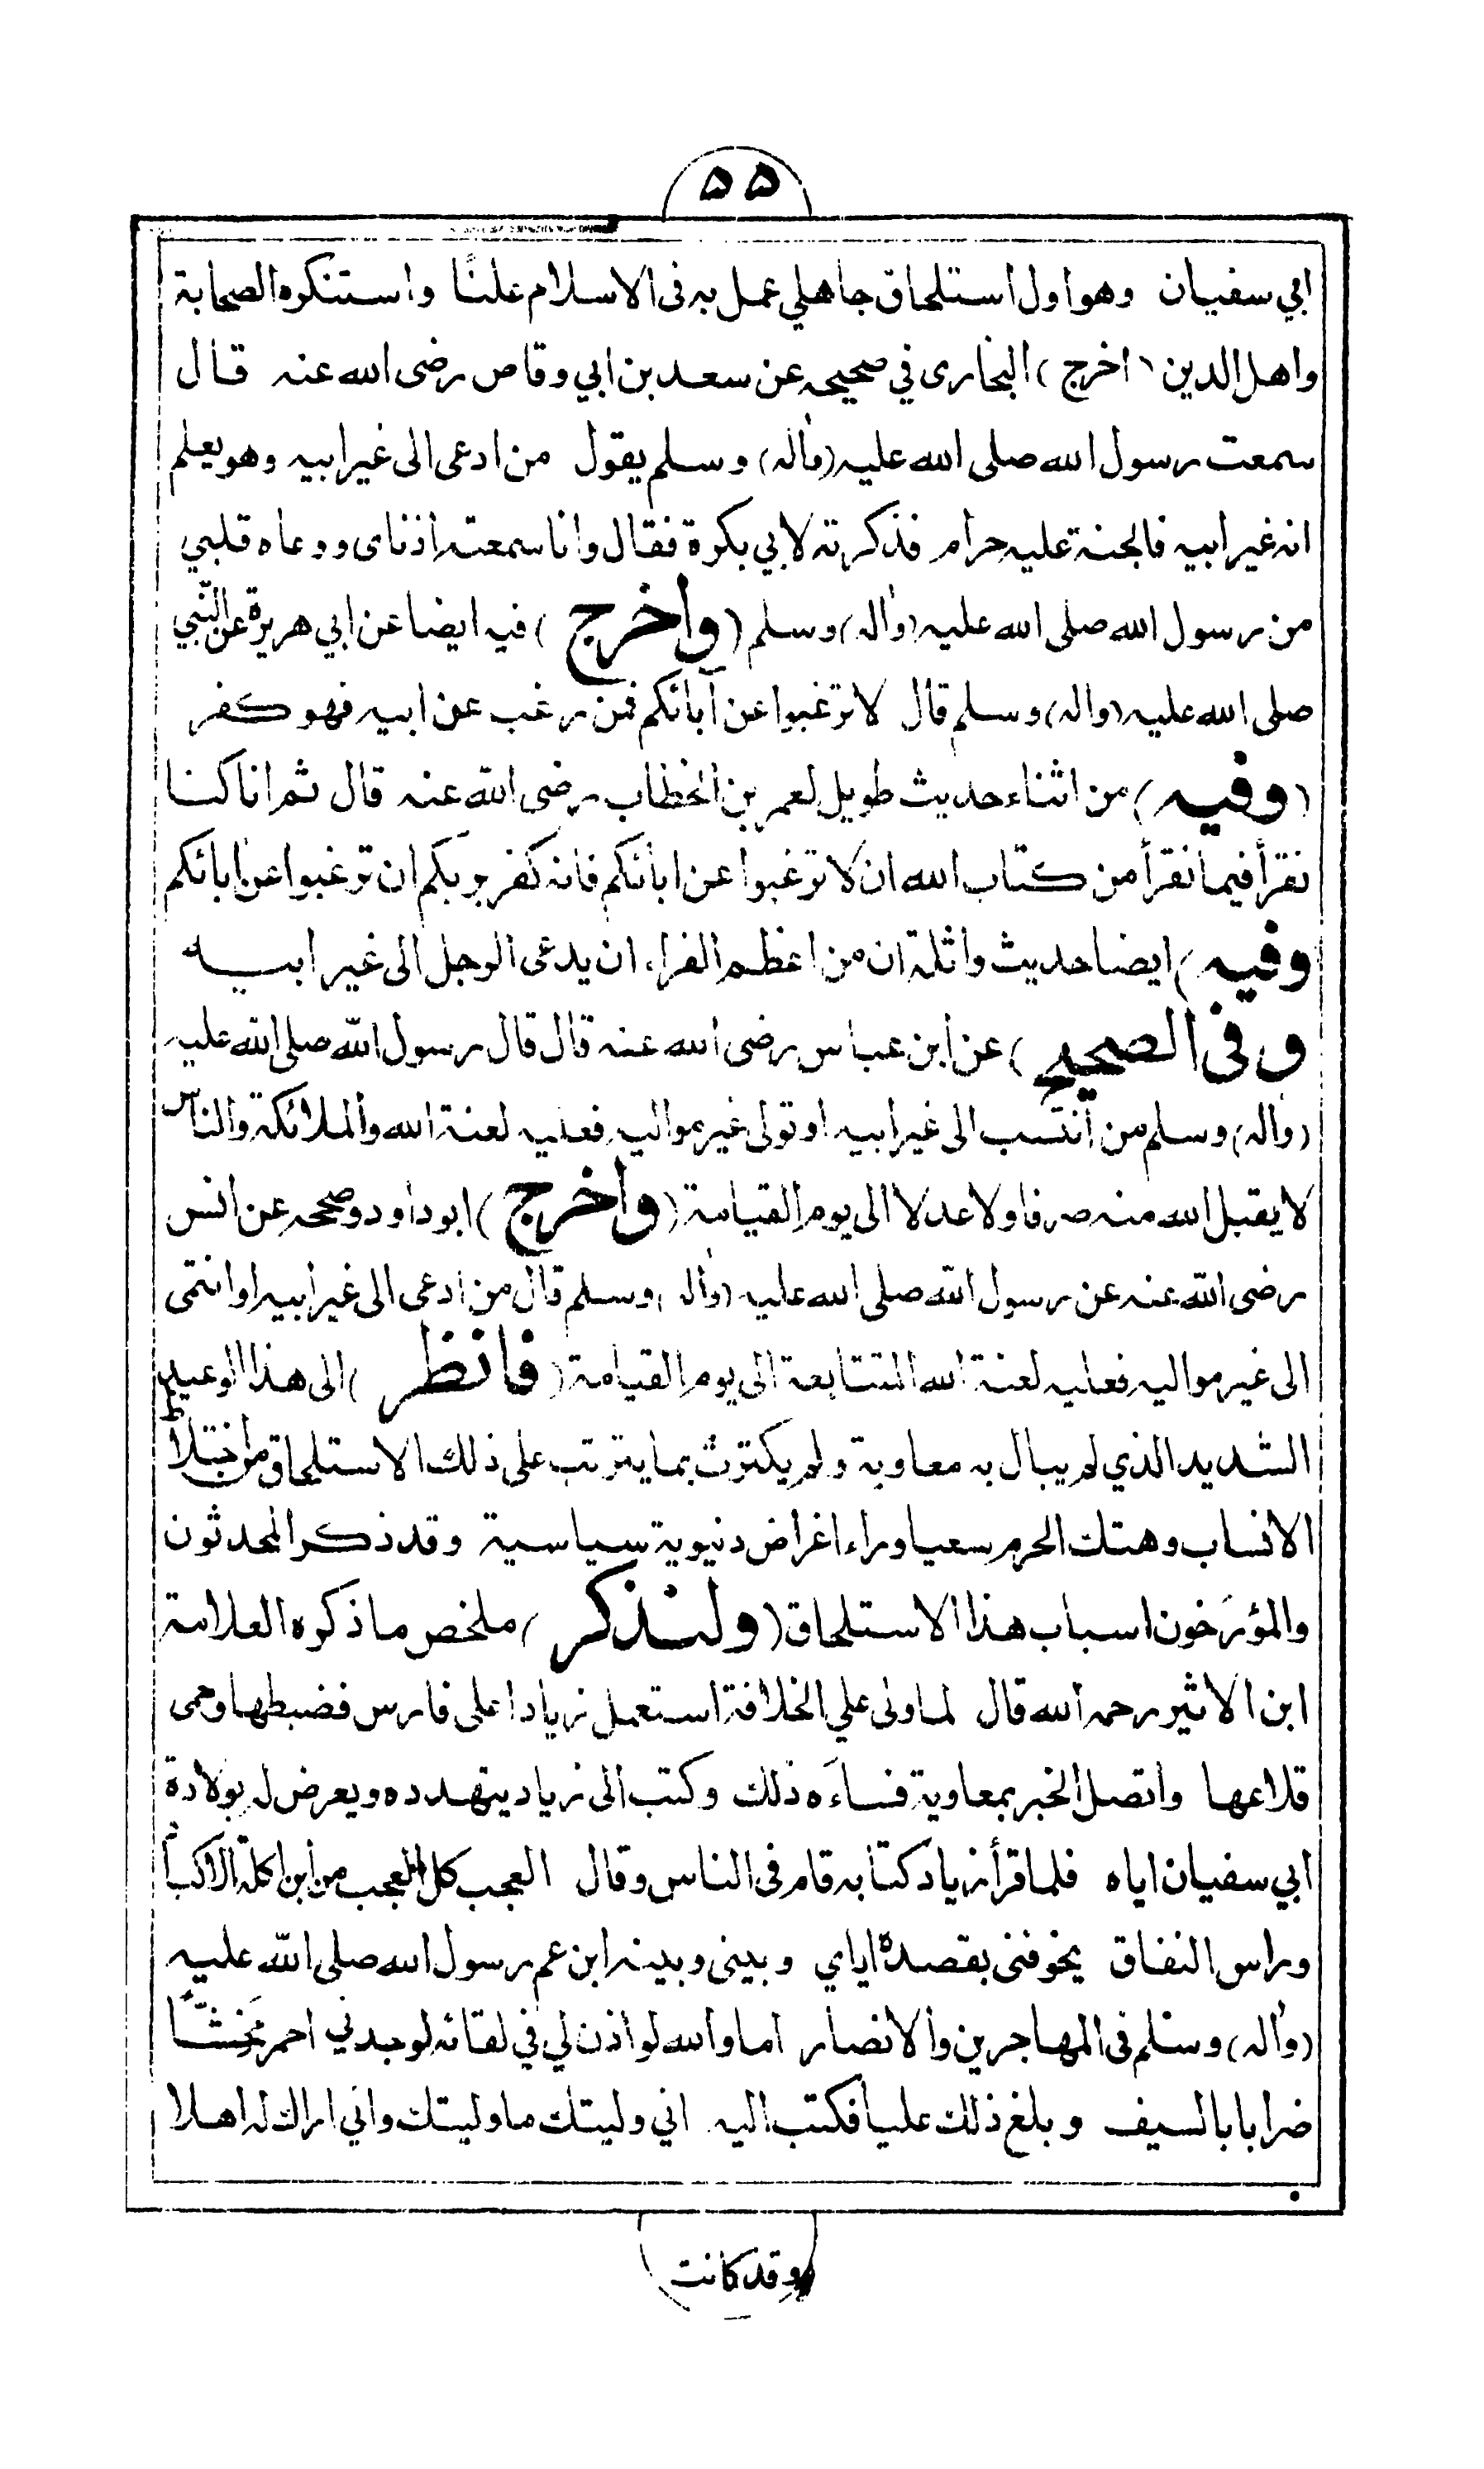 ۵۵
ابي سفيان وهو اول استلحاق جاهلي عمل به فى الاسلام علنًا واستنكره الصحابة
واهل الدين (اخرج) البخارى في صحيحه عن سعد بن ابي وقاص رضى الله عنه قال
سمعت رسول الله صلى الله عليه (واله) وسلم يقول من ادعى الى غير ابيه وهو يعلم
انه غير ابيه فالجنة عليه حرام فذكرته لابي بكرة فقال وانا سمعته اذناى ووعاه قلبي
من رسول الله صلى الله عليه (واله) وسلم (واخرج) فيه ايضا عن ابي هريرة عن النّبي
صلى الله عليه (واله) وسلم قال لا ترغبوا عن آبائكم فمن رغب عن ابيه فهو كفر
(وفيه) من اثناء حديث طويل لعمر بن الخطاب رضى الله عنه قال ثم انا كنا
نقرأ فيما نقرأ من كتاب الله ان لا ترغبوا عن ابائكم فانه كفر بربكم ان ترغبوا عن ابائكم
(وفيه) ايضا حديث واثلة ان من اعظم الفراء ان يدعى الرجل الى غير ابيه
وفى الصحيح) عن ابن عباس رضى الله عنه قال قال رسول الله صلى الله عليه
(واله) وسلم من انتسب الى غير ابيه او تولى غير مواليه فعليه لعنة الله والملائكة والناس
لا يقبل الله منه صرفا ولا عدلا الى يوم القيامة (واخرج) ابو داود وصححه عن انس
رضى الله عنه عن رسول الله صلى الله عليه (واله) وسلم قال من ادعى الى غير ابيه او انتمى
الى غير مواليه فعليه لعنة الله المتتابعة الى يوم القيامة (فانظر) الى هذا الوعيد
الشديد الذي لم يبال به معاوية ولم يكترث بما يترتب على ذلك الاستلحاق من اختلاط
الانساب وهتك الحرم سعيا وراء اغراض دنيوية سياسية وقد ذكر المحدثون
والمؤرخون اسباب هذا الاستلحاق (ولنذكر) ملخص ما ذكره العلامة
ابن الاثير رحمه الله قال لما ولى علي الخلافة استعمل زيادا على فارس فضبطها وحمى
قلاعها واتصل الخبر بمعاوية فساءَه ذلك وكتب الى زياد يتهدده ويعرض له بولادة
ابي سفيان اياه فلما قرأ زياد كتابه قام فى الناس وقال العجب كل العجب من ابن اكلة الاكباد
وراس النفاق يخوفنى بقصده اياي وبينى وبينه ابن عم رسول الله صلى الله عليه
(واله) وسلم فى المهاجرين والانصار اما والله لو اذن لي في لقائه لوجدني احمر مخشّاً
ضرابا بالسيف وبلغ ذلك عليا فكتب اليه اني وليتك ما وليتك واني اراك له اهلا
وقد كانت